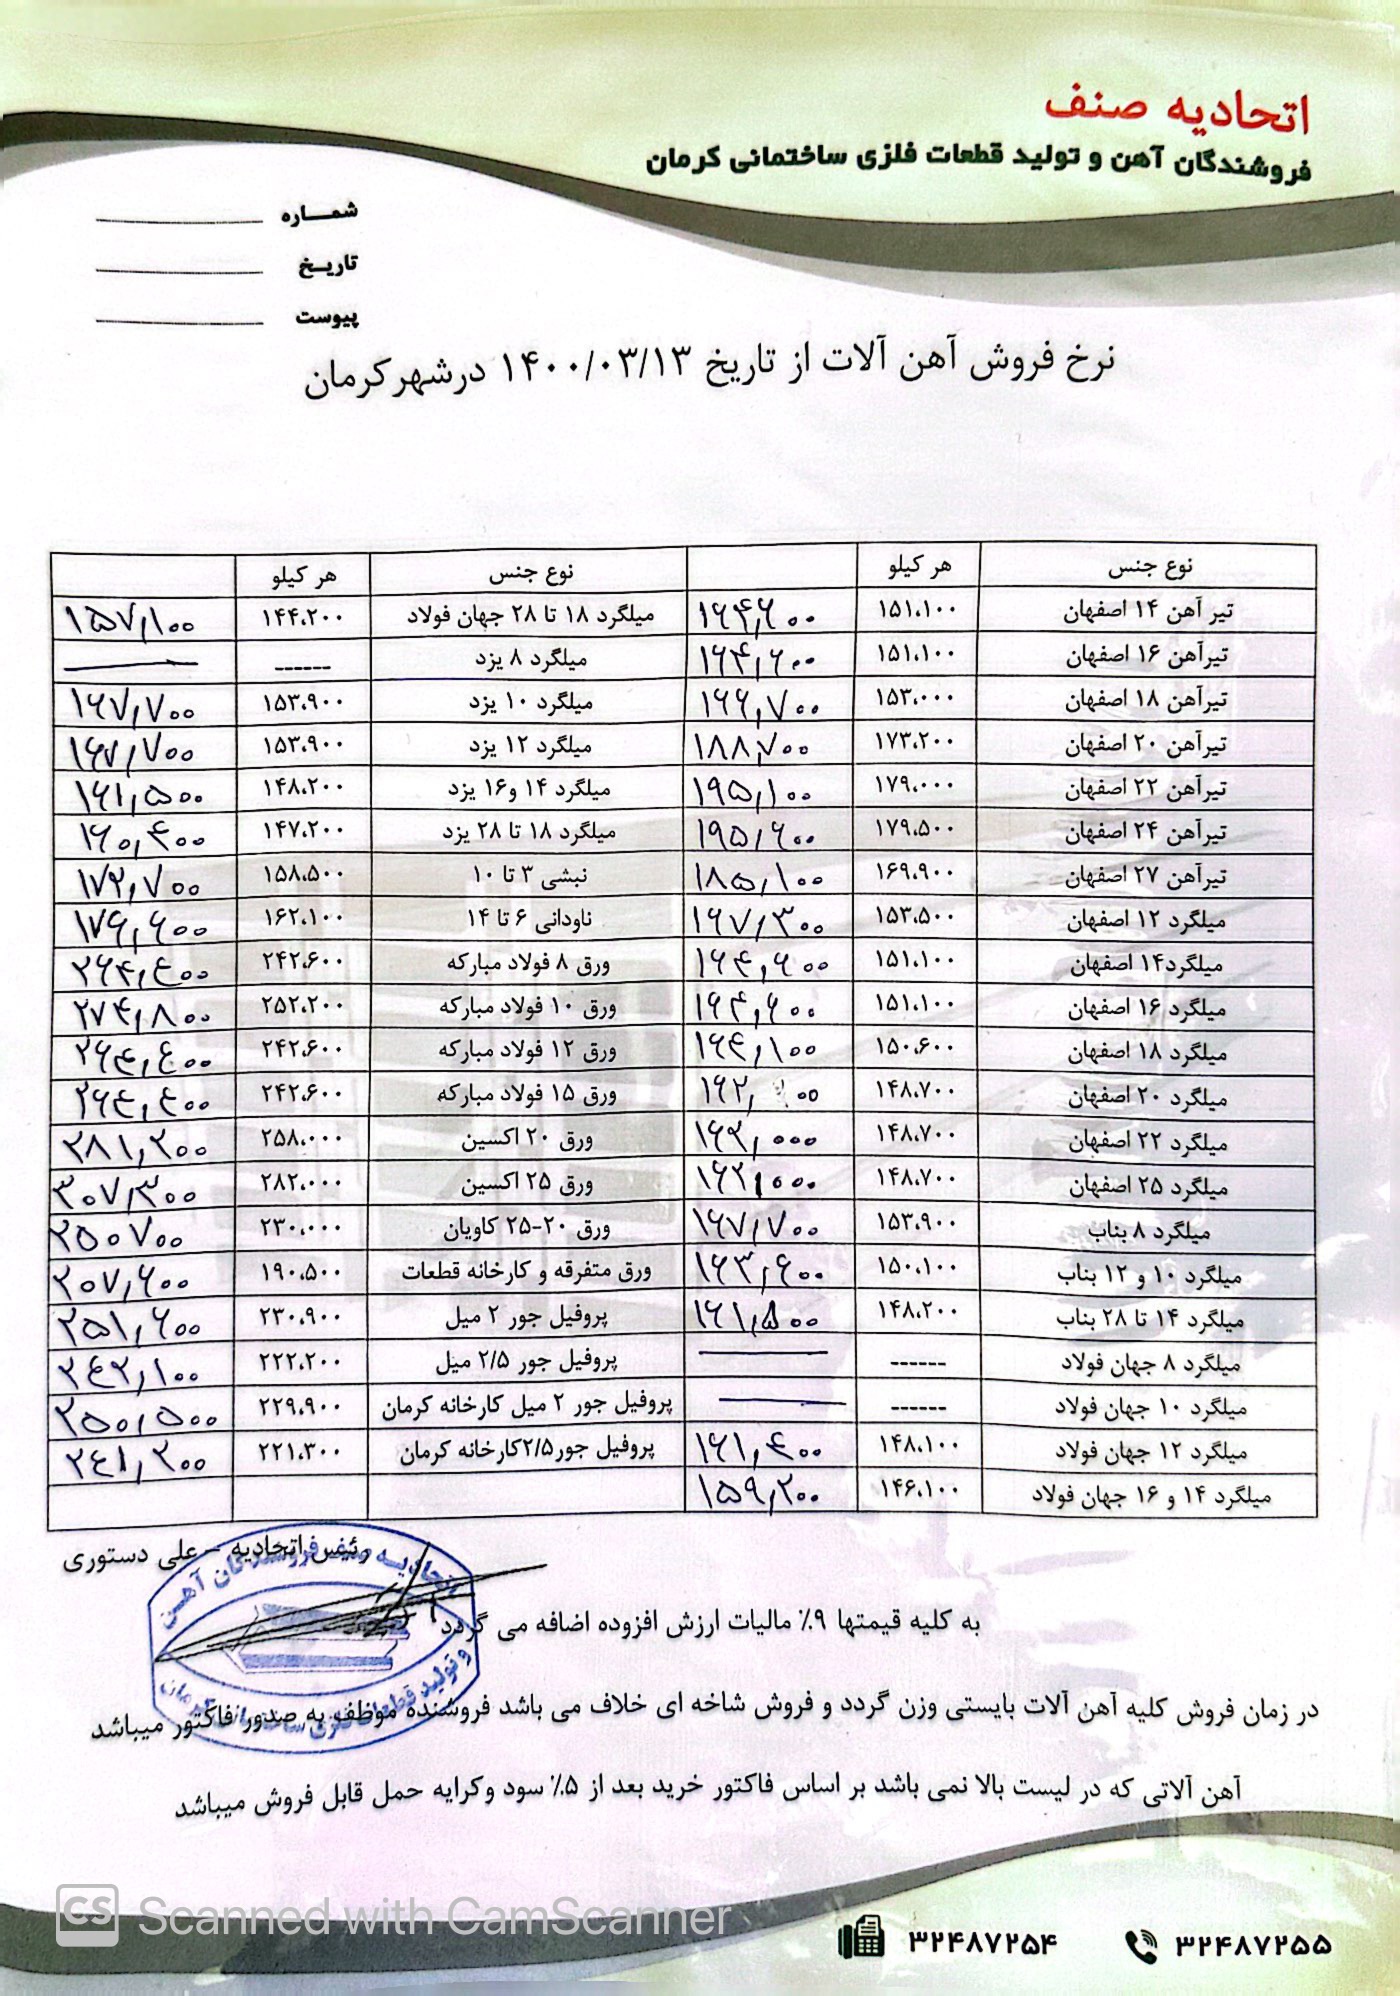 اتحادیه صنف
فروشندگان آهن و تولید قطعات فلزی ساختمانی کرمان
شماره
تاریخ
پیوست
نرخ فروش آهن آلات از تاریخ ۱۴۰۰/۰۳/۱۳ درشهرکرمان
نوع جنس هر کیلو نوع جنس هر کیلو
تیر آهن ۱۴ اصفهان ۱۵۱،۱۰۰ ۱۶۴,۶۰۰ میلگرد ۱۸ تا ۲۸ جهان فولاد ۱۴۴،۲۰۰ ۱۵۷,۱۰۰
تیرآهن ۱۶ اصفهان ۱۵۱،۱۰۰ ۱۶۴,۶۰۰ میلگرد ۸ یزد ------
تیرآهن ۱۸ اصفهان ۱۵۳،۰۰۰ ۱۶۶,۷۰۰ میلگرد ۱۰ یزد ۱۵۳،۹۰۰ ۱۶۷,۷۰۰
تیرآهن ۲۰ اصفهان ۱۷۳،۲۰۰ ۱۸۸,۷۰۰ میلگرد ۱۲ یزد ۱۵۳،۹۰۰ ۱۶۷,۷۰۰
تیرآهن ۲۲ اصفهان ۱۷۹،۰۰۰ ۱۹۵,۱۰۰ میلگرد ۱۴ و۱۶ یزد ۱۴۸،۲۰۰ ۱۶۱,۵۰۰
تیرآهن ۲۴ اصفهان ۱۷۹،۵۰۰ ۱۹۵,۶۰۰ میلگرد ۱۸ تا ۲۸ یزد ۱۴۷،۲۰۰ ۱۶۰,۴۰۰
تیرآهن ۲۷ اصفهان ۱۶۹،۹۰۰ ۱۸۵,۱۰۰ نبشی ۳ تا ۱۰ ۱۵۸،۵۰۰ ۱۷۲,۷۰۰
میلگرد ۱۲ اصفهان ۱۵۳،۵۰۰ ۱۶۷,۳۰۰ ناودانی ۶ تا ۱۴ ۱۶۲،۱۰۰ ۱۷۶,۶۰۰
میلگرد۱۴ اصفهان ۱۵۱،۱۰۰ ۱۶۴,۶۰۰ ورق ۸ فولاد مبارکه ۲۴۲،۶۰۰ ۲۶۴,۴۰۰
میلگرد ۱۶ اصفهان ۱۵۱،۱۰۰ ۱۶۴,۶۰۰ ورق ۱۰ فولاد مبارکه ۲۵۲،۲۰۰ ۲۷۴,۸۰۰
میلگرد ۱۸ اصفهان ۱۵۰،۶۰۰ ۱۶۴,۱۰۰ ورق ۱۲ فولاد مبارکه ۲۴۲،۶۰۰ ۲۶۴,۴۰۰
میلگرد ۲۰ اصفهان ۱۴۸،۷۰۰ ۱۶۲,۰۰۰ ورق ۱۵ فولاد مبارکه ۲۴۲،۶۰۰ ۲۶۴,۴۰۰
میلگرد ۲۲ اصفهان ۱۴۸،۷۰۰ ۱۶۲,۰۰۰ ورق ۲۰ اکسین ۲۵۸،۰۰۰ ۲۸۱,۲۰۰
میلگرد ۲۵ اصفهان ۱۴۸،۷۰۰ ۱۶۲,۰۰۰ ورق ۲۵ اکسین ۲۸۲،۰۰۰ ۳۰۷,۳۰۰
میلگرد ۸ بناب ۱۵۳،۹۰۰ ۱۶۷,۷۰۰ ورق ۲۰-۲۵ کاویان ۲۳۰،۰۰۰ ۲۵۰۷۰۰
میلگرد ۱۰ و ۱۲ بناب ۱۵۰،۱۰۰ ۱۶۳,۶۰۰ ورق متفرقه و کارخانه قطعات ۱۹۰،۵۰۰ ۲۰۷,۶۰۰
میلگرد ۱۴ تا ۲۸ بناب ۱۴۸،۲۰۰ ۱۶۱,۵۰۰ پروفیل جور ۲ میل ۲۳۰،۹۰۰ ۲۵۱,۶۰۰
میلگرد ۸ جهان فولاد ------ پروفیل جور ۲/۵ میل ۲۲۲،۲۰۰ ۲۴۲,۱۰۰
میلگرد ۱۰ جهان فولاد ------ پروفیل جور ۲ میل کارخانه کرمان ۲۲۹،۹۰۰ ۲۵۰,۵۰۰
میلگرد ۱۲ جهان فولاد ۱۴۸،۱۰۰ ۱۶۱,۴۰۰ پروفیل جور۲/۵کارخانه کرمان ۲۲۱،۳۰۰ ۲۴۱,۲۰۰
میلگرد ۱۴ و ۱۶ جهان فولاد ۱۴۶،۱۰۰ ۱۵۹,۲۰۰
رئیس اتحادیه – علی دستوری
اتحادیه صنف فروشندگان آهن
و تولید قطعات فلزی ساختمانی کرمان
به کلیه قیمتها ۹٪ مالیات ارزش افزوده اضافه می گردد
در زمان فروش کلیه آهن آلات بایستی وزن گردد و فروش شاخه ای خلاف می باشد فروشنده موظف به صدور فاکتور میباشد
آهن آلاتی که در لیست بالا نمی باشد بر اساس فاکتور خرید بعد از ۵٪ سود وکرایه حمل قابل فروش میباشد
CS Scanned with CamScanner
۳۲۴۸۷۲۵۴ ۳۲۴۸۷۲۵۵